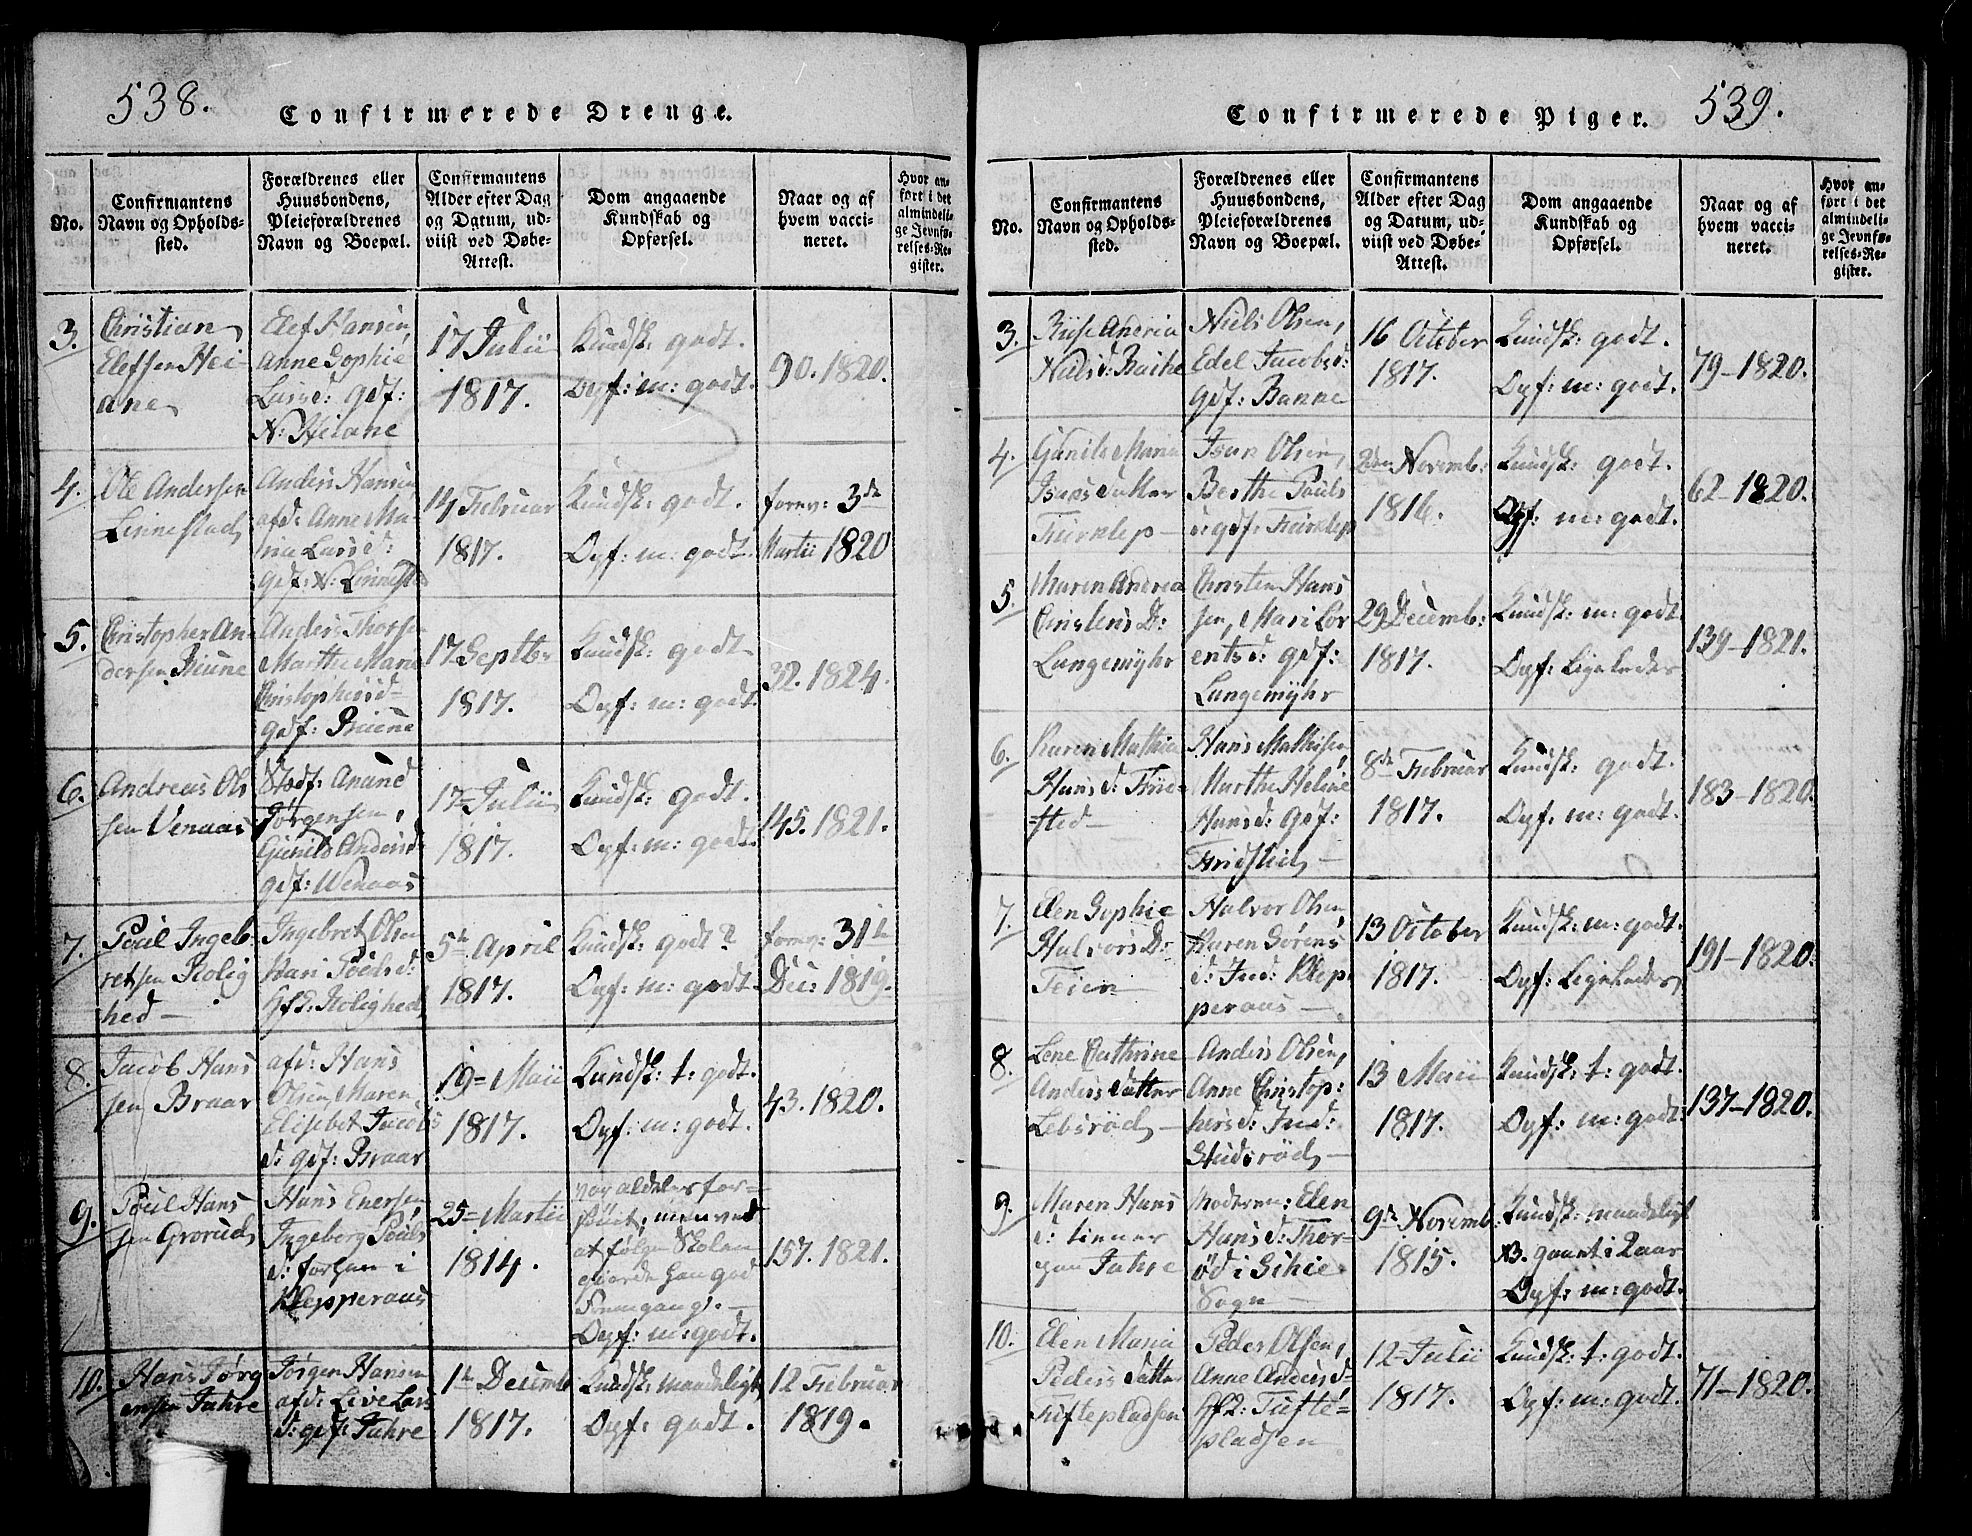 538.
Confirmerede Drenge.
No.
Confirmantens
Navn og Opholds-
sted.
Forældrenes eller
Huusbondens,
Pleieforældrenes
Navn og Boepæl.
Confirmantens
Alder efter Dag
og Datum, ud-
viist ved Døbe-
Attest.
Dom angaaende
Kundskab og
Opførsel.
Naar og af
hvem vacci-
neret.
Hvor an-
ført i det
almindeli-
ge Jevnfø-
relses-Re-
gister.
3.
Christian
Elefsen Hei
ane
Elef Hansen,
Anne Sophie
Larsd: gdf:
N: Heiane
17 Julii
1817.
Kundsk: godt.
Opf: m: godt.
90. 1820.
4.
Ole Andersen
Linnestad
Anders Hansen
afd: Anne Ma-
ria Larsd:
Gdf: N: Linnest
14 Februar
1817.
Kundsk: godt.
Opf: m: godt.
forev: 3de
Martii 1820
5.
Christopher An-
dersen Bruune
Anders Thorse
Marthe Marie
Christophersd-
gdf: Bruune
17 Septbr
1817.
Kundsk: godt
Opf: m: godt.
32. 1824.
6.
Andreas Ol
sen Venaas
Stedf: Anund
Jørgensen,
Gunild Andersd:
gdf: Wenaas
17- Julii
1817.
Kundsk: godt.
Opf: m: godt.
145. 1821.
7.
Poul Ingeb
retsen Rolig
hed —
Ingebret Olsen
Kari Poulsd:
Hfd: Rolighed
5te April
1817.
Kundsk: godt?
Opf: m: godt
forev: 31te
Dec: 1819.
8.
Jacob Hans
sen Braar
afd: Hans
Olsen, Maren
Elisebet Jacobs
d: gdf: Braar
19= Maii
1817.
Kundsk: t: godt.
Opf: m: godt.
43. 1820.
9.
Poul Hans
sen Grorud
Hans Enersen,
Ingeborg Pouls
d: forhen i
Klepperaas
25= Martii
1814.
var aldeles for=
siint, men ved
at følge Skolen
giorde han god
Fremgang. —
Opf: m: godt.
157. 1821.
10.
Hans Jørg
ensen Fahre
Jørgen Hansen
afd: Live Lars
d: gdf: Fahre
1te Decemb
1817.
Kundsk: maadeligt,
Opf: godt.
12 Februar
1819.
Confirmerede Piger.
539.
No.
Confirmantens
Navn og Opholds-
sted.
Forældrenes eller
Huusbondens,
Pleieforældrenes
Navn og Boepæl.
Confirmantens
Alder efter Dag
og Datum, ud-
viist ved Døbe-
Attest.
Dom angaaende
Kundskab og
Opførsel.
Naar og af
hvem vacci-
neret.
Hvor an-
ført i det
almindeli-
ge Jevnfø-
relses-Re-
gister.
3.
Andrea
Nielsd:
Niels Olsen,
Edel Jacobsd:
Gdf: Banne
16 October
1817.
Kundsk: godt.
Opf: m: godt.
79-1820.
4.
Gunild Maria
Isaks Datter
Furiklep —
Isak Olsen,
Berthe Pouls
d: gdf: Furiklep
2den Novemb:
1816.
Kundsk: godt.
Opf: m: godt.
62-1820.
5.
Maren Andrea
Christens D:
Langemyhr
Christen Hans
sen, Mari Lor
entsd: gdf:
Langemyhr
29 Decemb:
1817.
Kundsk: m: godt
Opf: Ligeledes
139-1821.
6.
Karen Mathia
Hans d: Frie-
=sted —
Hans Mathisen,
Marthe Heline
Hansd: Gdf:
Fridsted —
8de Februar
1817.
Kundsk: godt.
Opf: m: godt.
183-1820.
7.
Elen Sophie
Halvors D:
Feien
Halvor Olsen,
Karen Sørens
d: Ind: Klep
peraas —
13 October
1817.
Kundsk: m: godt.
Opf: Ligeledes
191-1820.
8.
Lene Cathrine
Anders Datter
Lebsrød —
Anders Olsen,
Anne Christop:
hersd: Ind:
Studsrød —
13 Maii
1817.
Kundsk: t: godt.
Opf: m: godt.
137-1820.
9.
Maren Hans
d: tiener
paa Fahre
Moderen: Elen
Hans d: Thor-
ød i Schie
Sogn —
9de Novemb:
1815.
Kundsk: maadeligt
NB. gaaet i 2 aar
Opf: m: godt.
10.
Elen Maria
Peders Datter
Tuftepladsen
Peder Olsen,
Anne Andersd-
Hfd: Tufte=
pladsen
12- Julii
1817.
Kundsk: t: godt.
Opf: m: godt.
71-1820.